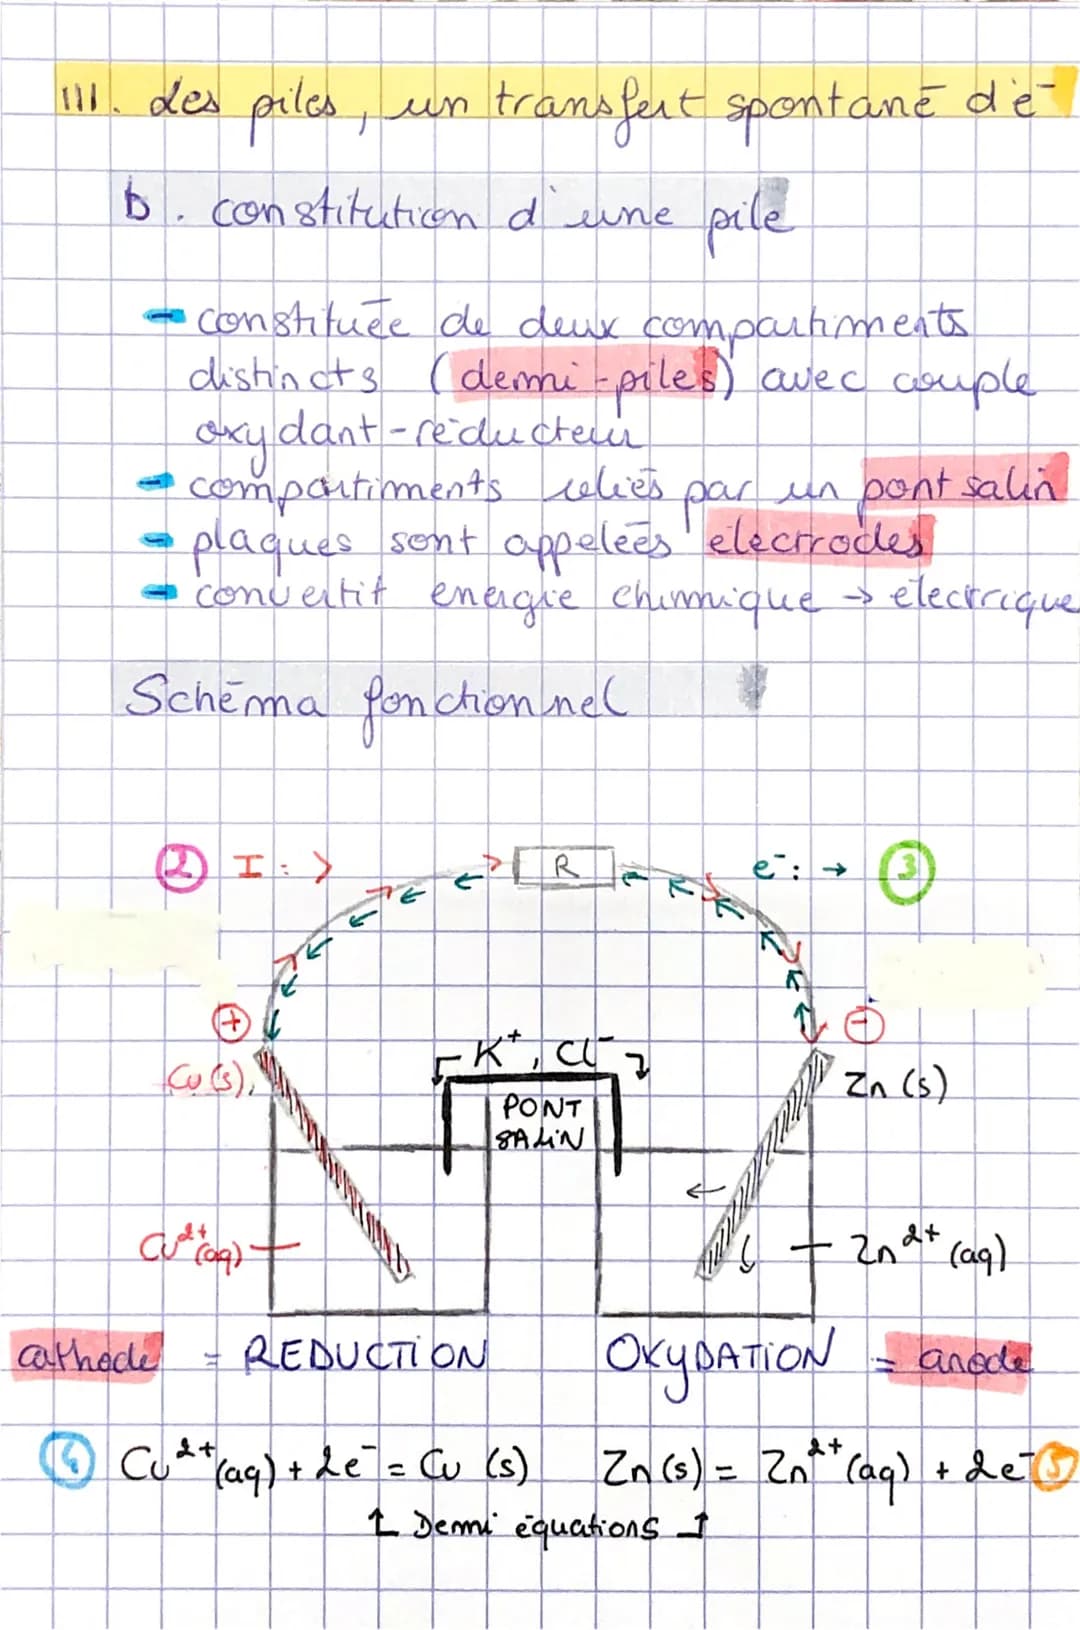 III. des piles, un transfert spontané d'e⁻
b. constitution d'une pile
- constituée de deux compartiments
distincts (demi-piles) avec couple
oxydant-réducteur
- compartiments reliés par un pont salin
- plaques sont appelées électrodes
- convertit énergie chimique → électrique
Schéma fonctionnel
② I : >
R
e⁻ : → ③
⊕
⊖
K⁺, Cl⁻
Cu (s)
Zn (s)
PONT
SALIN
Cu²⁺(aq)
Zn²⁺ (aq)
cathode = REDUCTION
OXYDATION = anode
④ Cu²⁺(aq) + 2e⁻ = Cu (s)
Zn (s) = Zn²⁺ (aq) + 2e⁻ ⑤
↑ Demi équations ↑